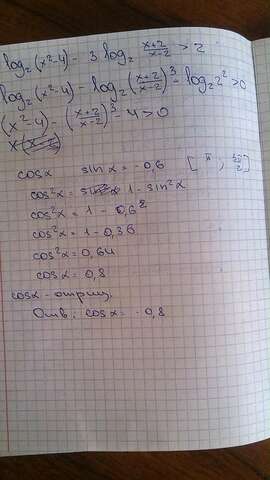 log₂(x²-4) - 3 log₂ (x+2)/(x-2) > 2
log₂(x²-4) - log₂((x+2)/(x-2))³ - log₂2² > 0
(x²-4) - ((x+2)/(x-2))³ - 4 > 0
cosx sinx = -0,6 [π; 3π/2]
cos²x = 1 - sin²x
cos²x = 1 - 0,6²
cos²x = 1 - 0,36
cos²x = 0,64
cosx = 0,8
cosx - отриц.
Отв: cosx = -0,8